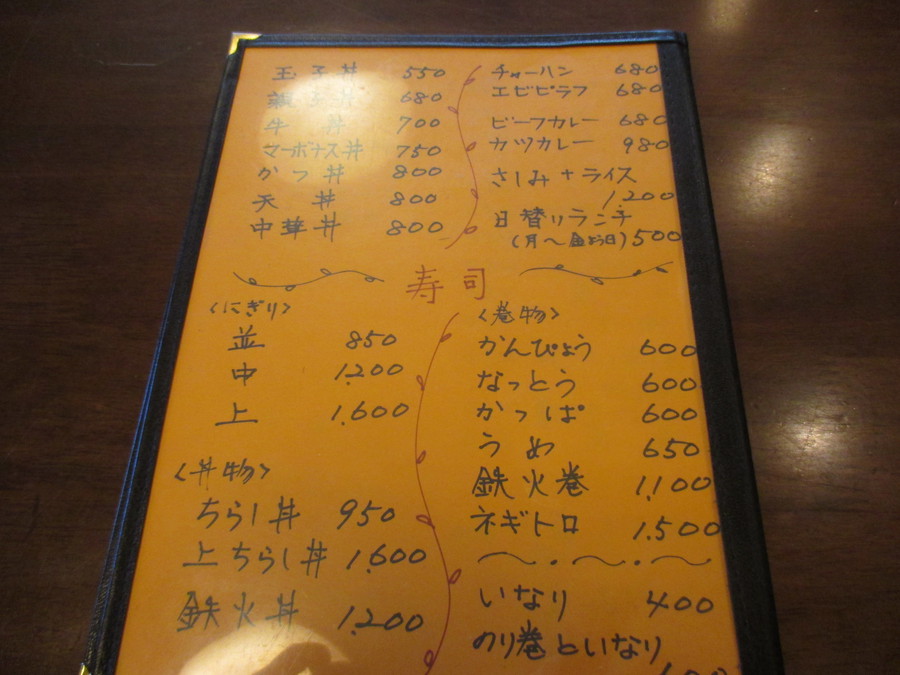 玉子丼 550
親子丼 680
牛丼 700
マーボナス丼 750
かつ丼 800
天丼 800
中華丼 800
チャーハン 680
エビピラフ 680
ビーフカレー 680
カツカレー 980
さしみ+ライス
1.200
日替りランチ
(月〜金よう日) 500
寿司
<にぎり>
並 850
中 1.200
上 1.600
<丼物>
ちらし丼 950
上ちらし丼 1.600
鉄火丼 1.200
<巻物>
かんぴょう 600
なっとう 600
かっぱ 600
うめ 650
鉄火巻 1.100
ネギトロ 1.500
いなり 400
のり巻といなり